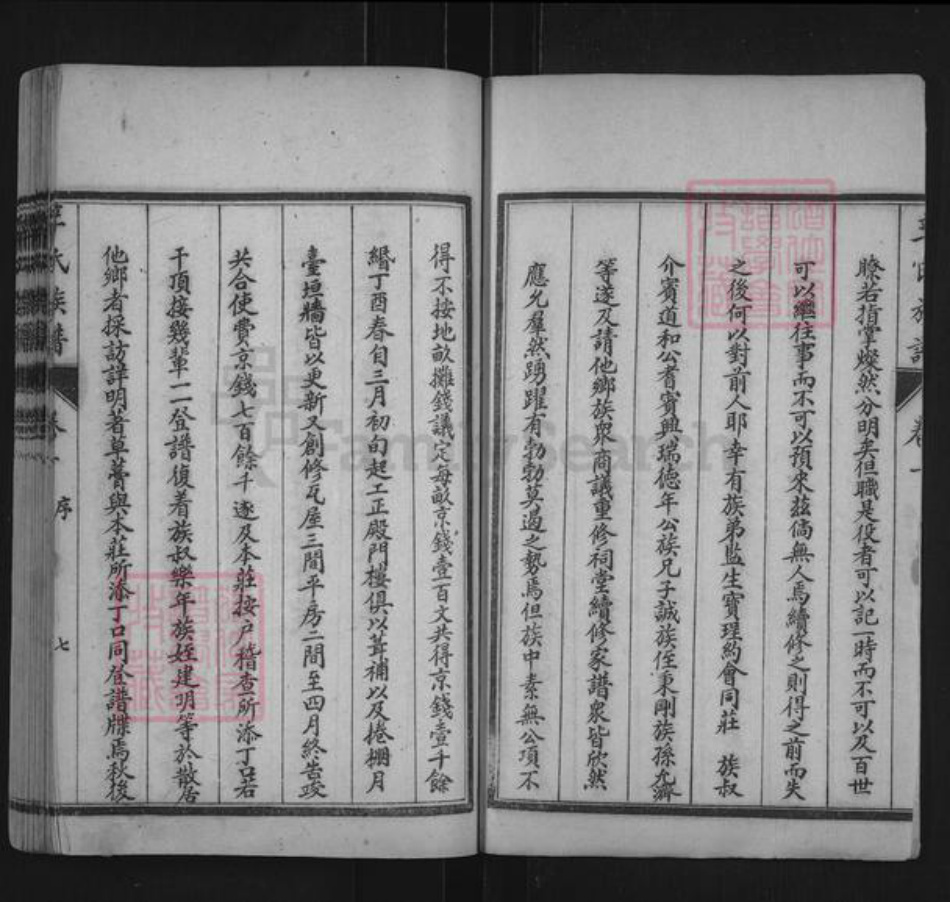 瞭若指掌燦然分明矣但職是役者可以記一時而不可以及百世
可以繼往事而不可以預來茲倘無人焉續修之則得之前而失
之後何以對前人耶幸有族弟監生寶珵約會同莊 族叔
介賓道和公耆賓興瑞德年公族兄子誠族侄秉剛族孫允濟
等遂及請他鄉族眾商議重修祠堂續修家譜眾皆欣然
應允羣然踴躍有勃勃莫過之勢焉但族中素無公項不
得不按地畝攤錢議定每畝京錢壹百文共得京錢壹千餘
緡丁酉春自三月初旬起工正殿門樓俱以葺補以及捲棚月
臺垣牆皆以更新又創修瓦屋三間平房二間至四月終告竣
共合使費京錢七百餘千遂及本莊按户稽查所添丁口若
干頂接幾輩一一登譜復着族叔樂年族姪建明等於散居
他鄉者採訪詳明著草藁與本莊所添丁口同登譜牒焉秋後
氏族譜
卷一
序
七
FamilySearch